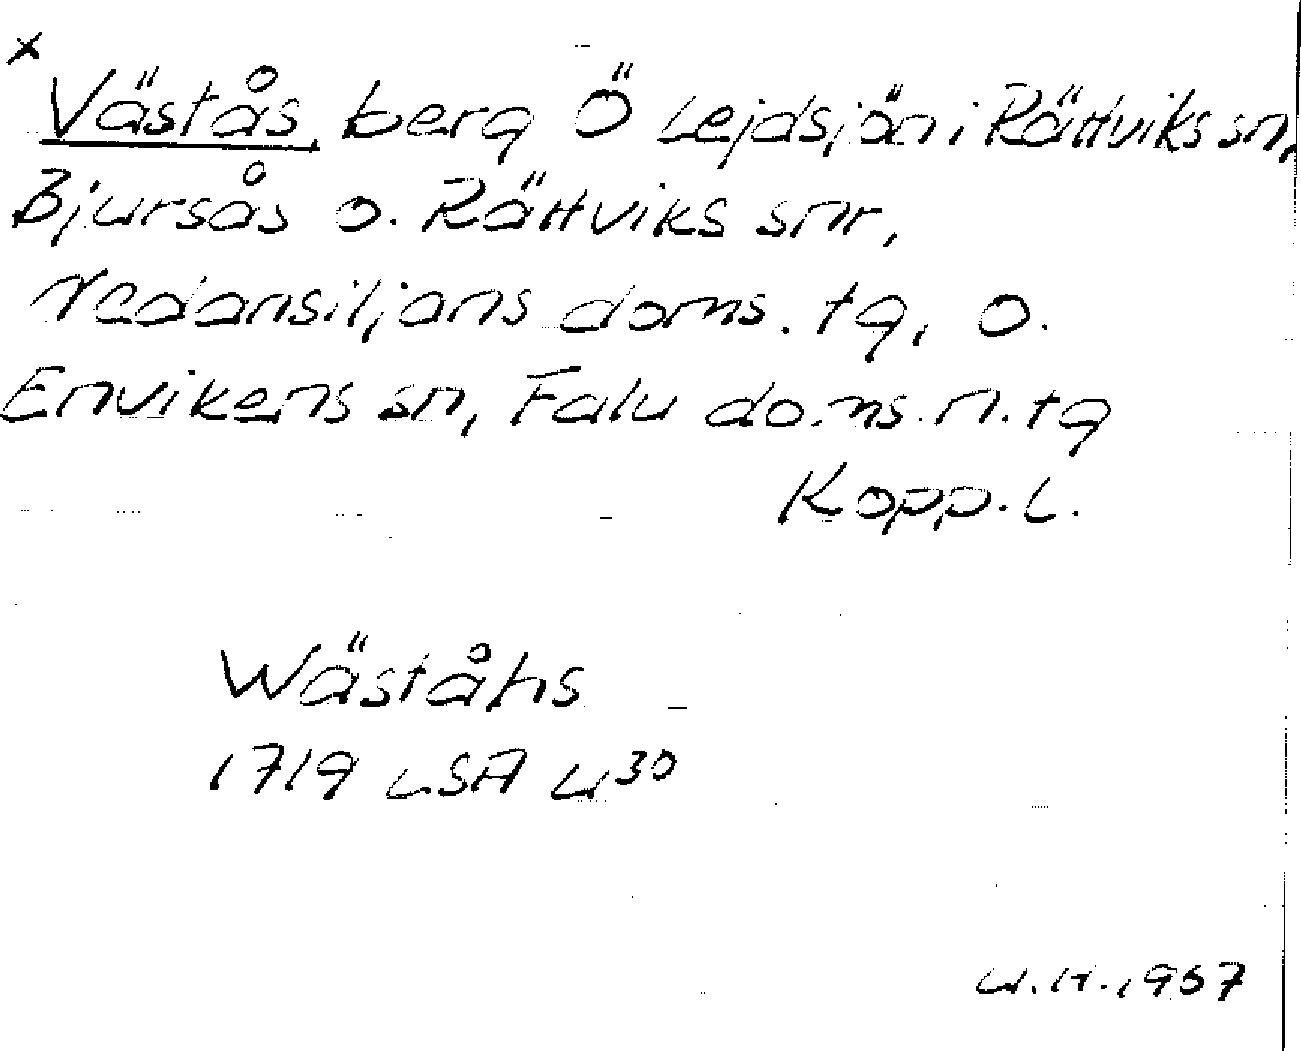 x
Västås, berg Ö Lejdsjön i Rättviks sn,
Bjursås o. Rättviks snr,
Nedansiljans doms. tg, o.
Envikens sn, Falu doms. n. tg
Kopp. L.
Wäståhs
1719 LSA U30
U.H. 1957